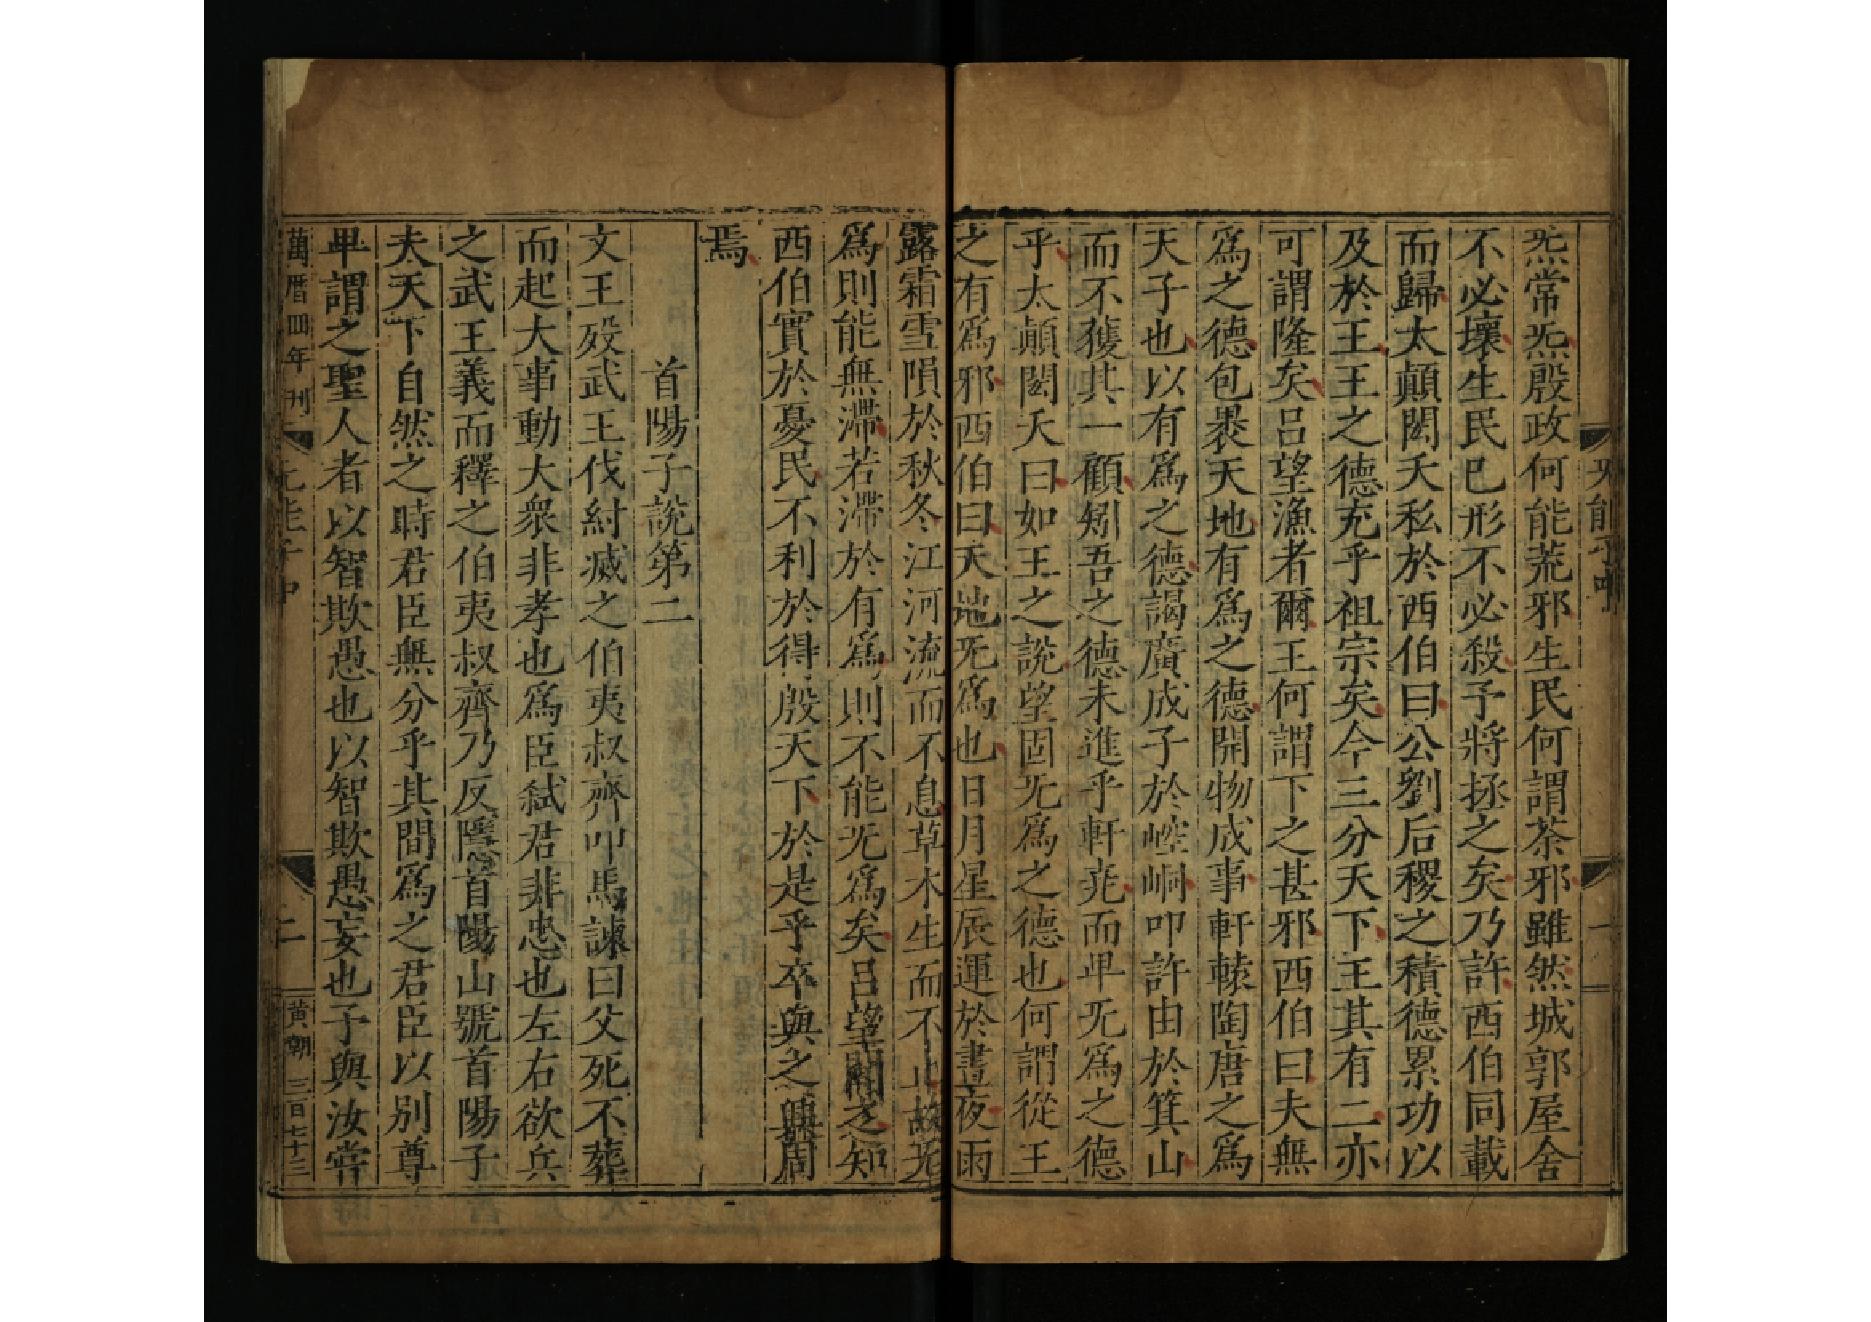 无能子中
一
炁常炁殷政何能荒邪生民何謂荼邪雖然城郭屋舍
不必壞生民已形不必殺予將拯之矣乃許西伯同載
而歸太顛閎夭私於西伯曰公劉后稷之積德累功以
及於王王之德充乎祖宗矣今三分天下王其有二亦
可謂隆矣呂望漁者爾王何謂下之甚邪西伯曰夫無
爲之德包褁天地有爲之德開物成事軒轅陶唐之爲
天子也以有爲之德謁廣成子於崆峒叩許由於箕山
而不獲其一顧矧吾之德未進乎軒堯而𤰞无爲之德
乎太顛閎夭曰如王之說望固无爲之德也何謂從王
之有爲邪西伯曰天地无爲也日月星辰運於晝夜雨
露霜雪隕於秋冬江河流而不息草木生而不止故无
爲則能無滯若滯於有爲則不能无爲矣呂望聞之知
西伯實於憂民不利於得殷天下於是乎卒與之興周
焉
首陽子說第二
文王歿武王伐紂滅之伯夷叔齊叩馬諫曰父死不葬
而起大事動大衆非孝也爲臣弑君非忠也左右欲兵
之武王義而釋之伯夷叔齊乃反隱首陽山號首陽子
夫天下自然之時君臣無分乎其間爲之君臣以別尊
𤰞謂之聖人者以智欺愚也以智欺愚妄也予與汝嘗
萬曆四年刊
无能子中
二
黄朝 三百七十三